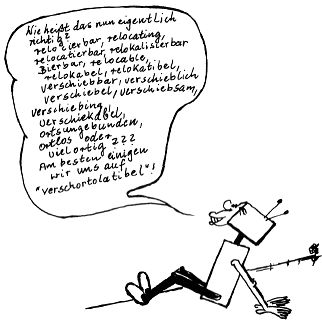 Wie heißt das nun eigentlich
richtig?
relozierbar, relocating,
relocatierbar, relokalisierbar
Bierbar, relocable,
relokabel, relokatibel,
verschiebbar, verschieblich
verschiebel, verschiebsam,
verschiebing,
verschiekabel,
ortsungebunden,
Ortlos oder
vielortig???
Am besten einigen
wir uns auf
"verschortolatibel"!